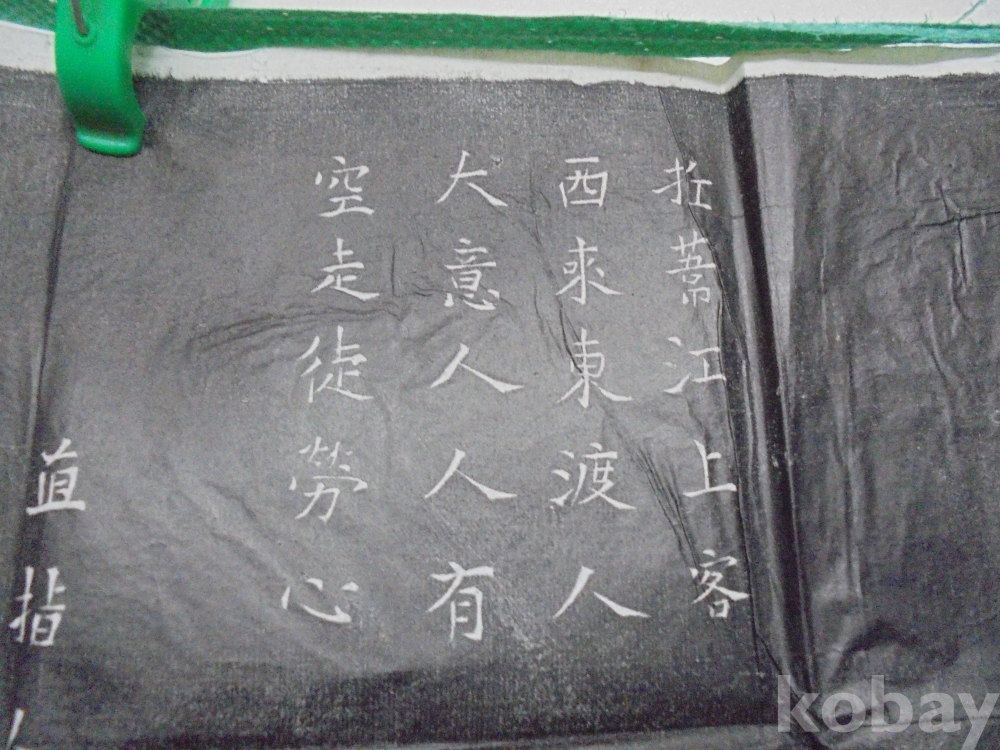 江上客
西來東渡人
大意人人有
空走徒勞心
直指
kobay